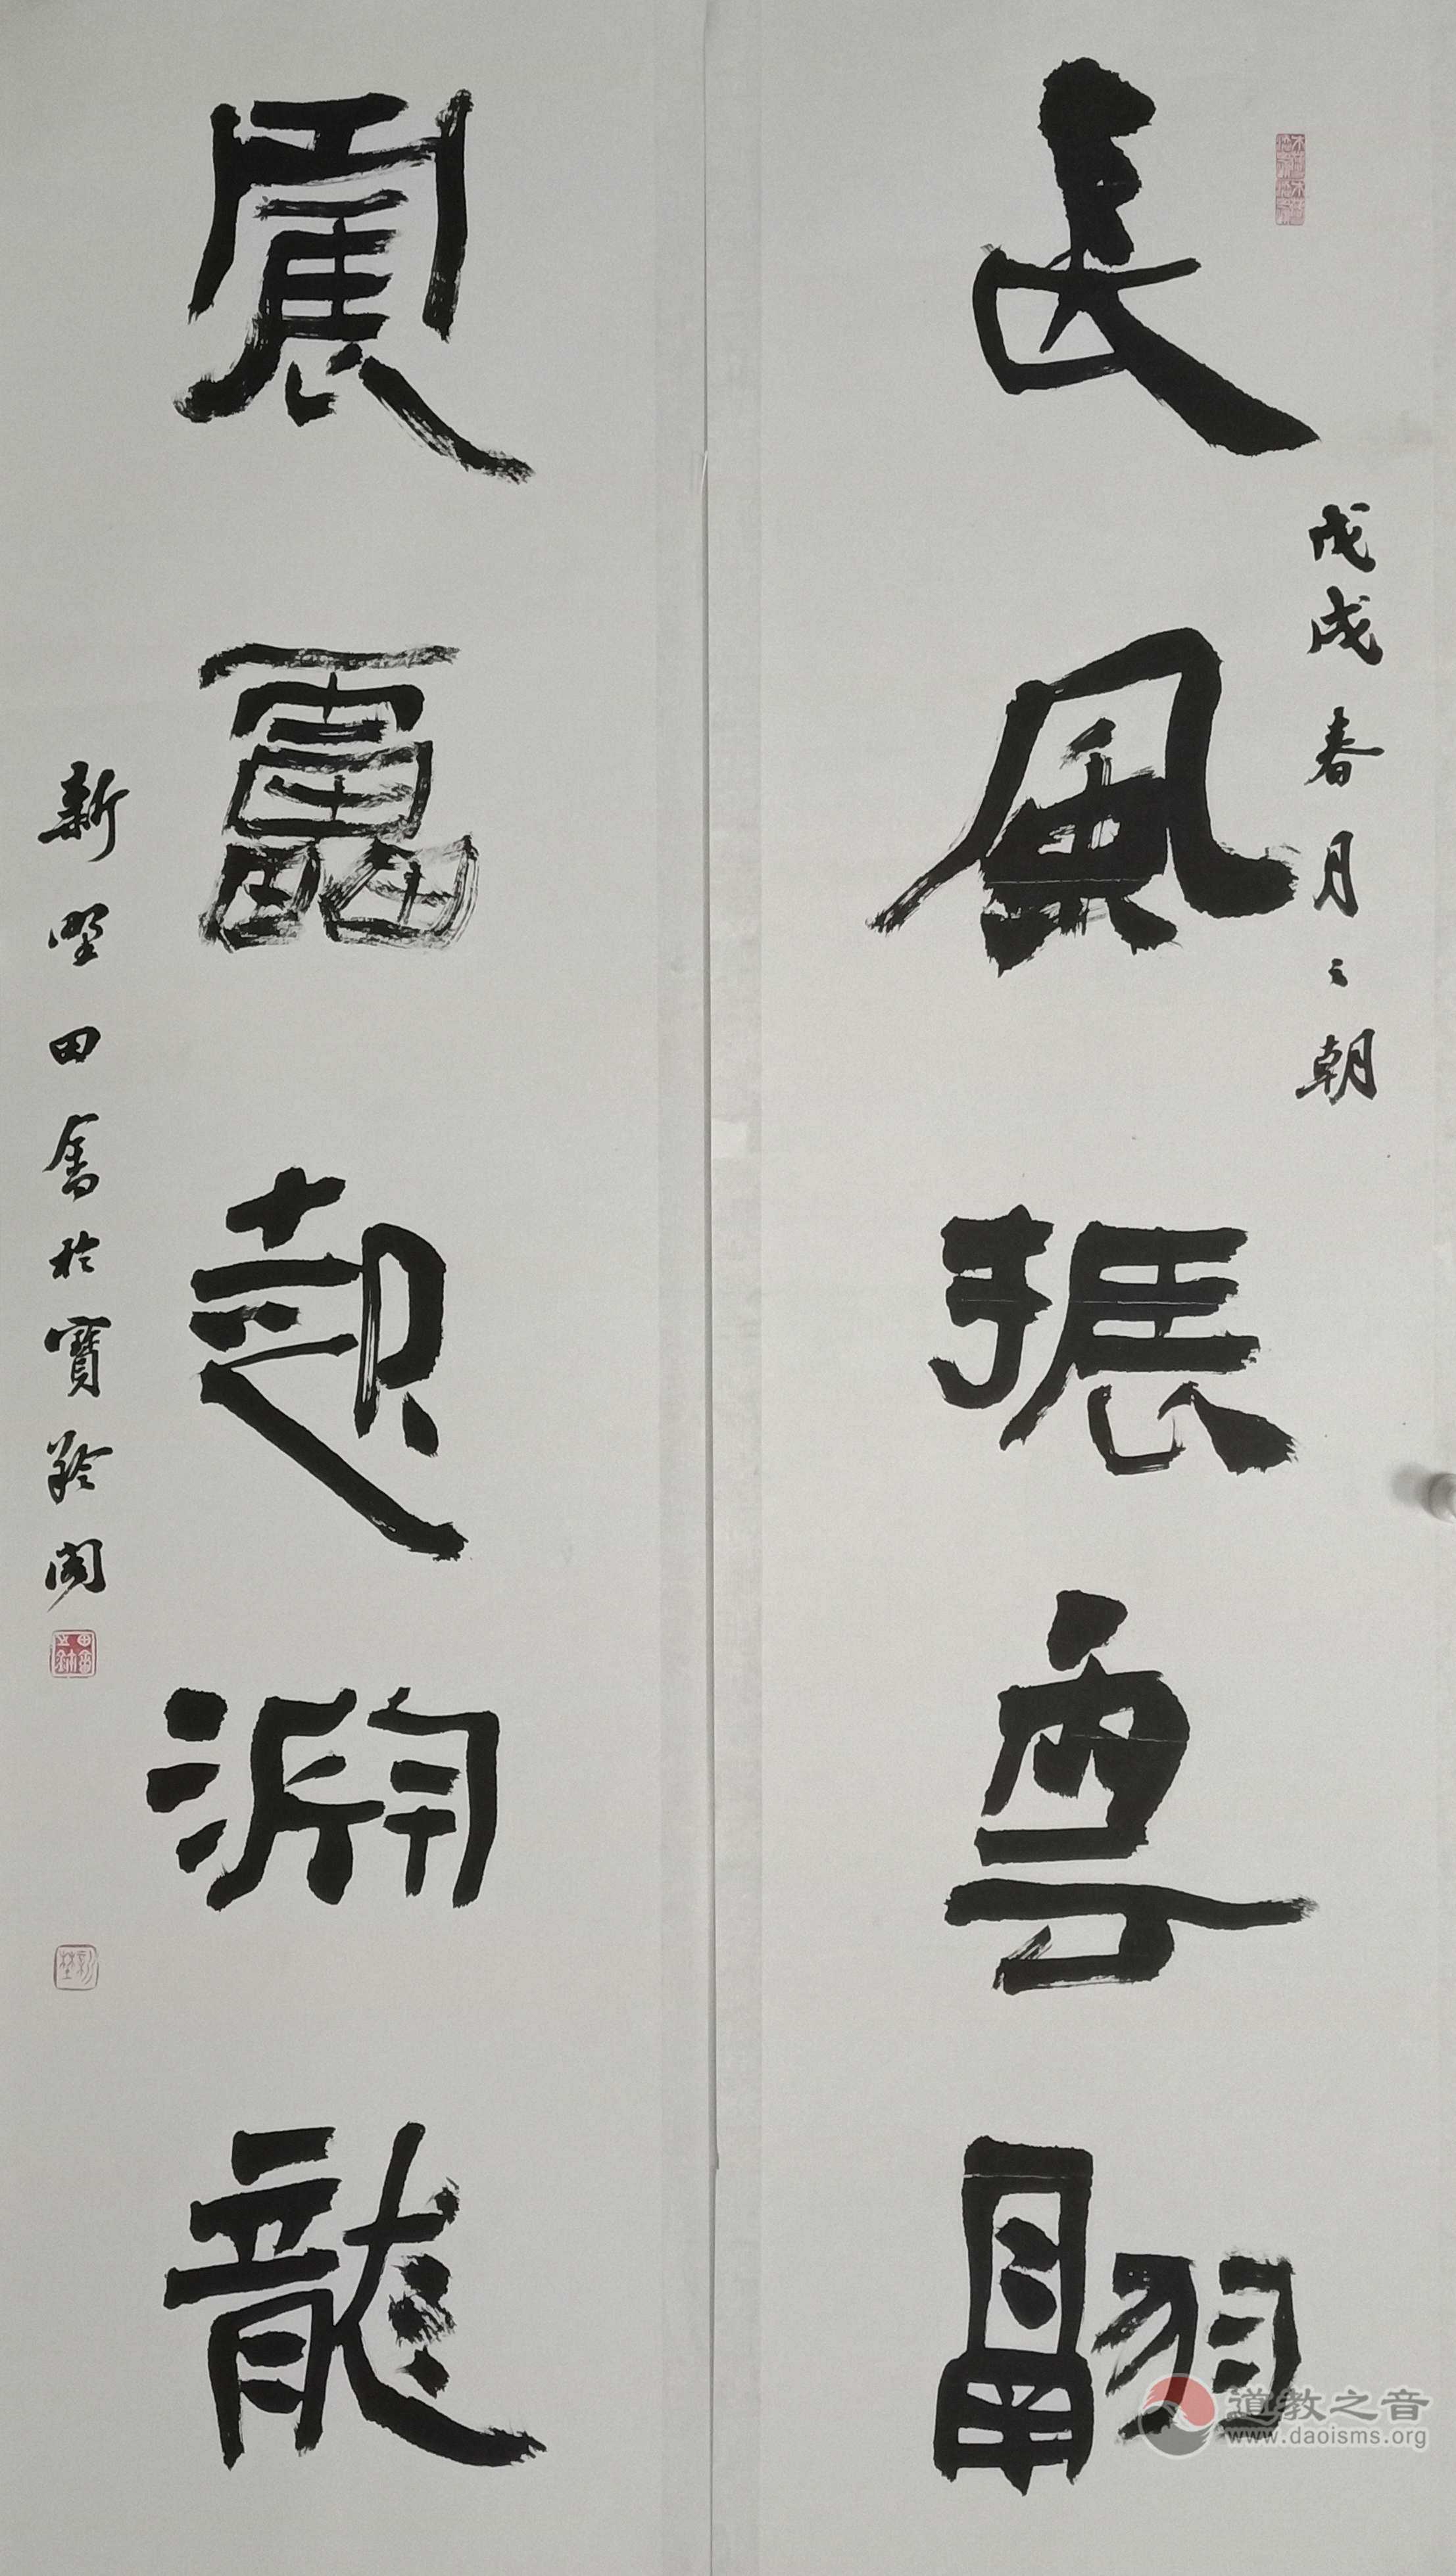 長風振雲翮
戊戌春月之朝
震靁起淵龍
新野田畬於寶 閣
道教之音
www.daoisms.org